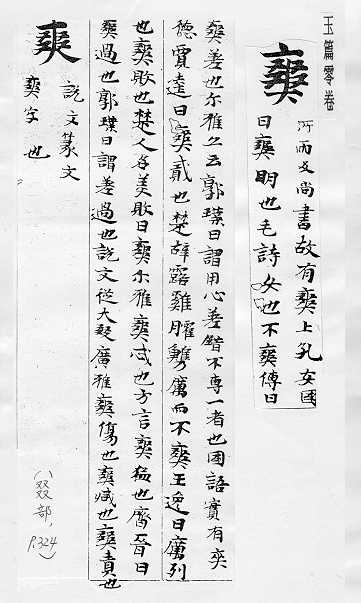 玉篇零卷
爽
所兩反尚書故有爽上孔安國
曰爽明也毛詩女也不爽傳曰
爽差也尒雅亦云郭璞曰謂用心差錯不專一者也国語實有爽
德賈逵曰爽貳也楚辞露雞臛蠵厲而不爽王逸曰厲列
也爽敗也楚人名羹敗曰爽尒雅爽忒也方言爽猛也齊晉曰
爽過也郭璞曰謂差過也說文從大㸚廣雅爽傷也爽減也爽責也
奭
說文篆文
爽字也
(㸚部, P.324)